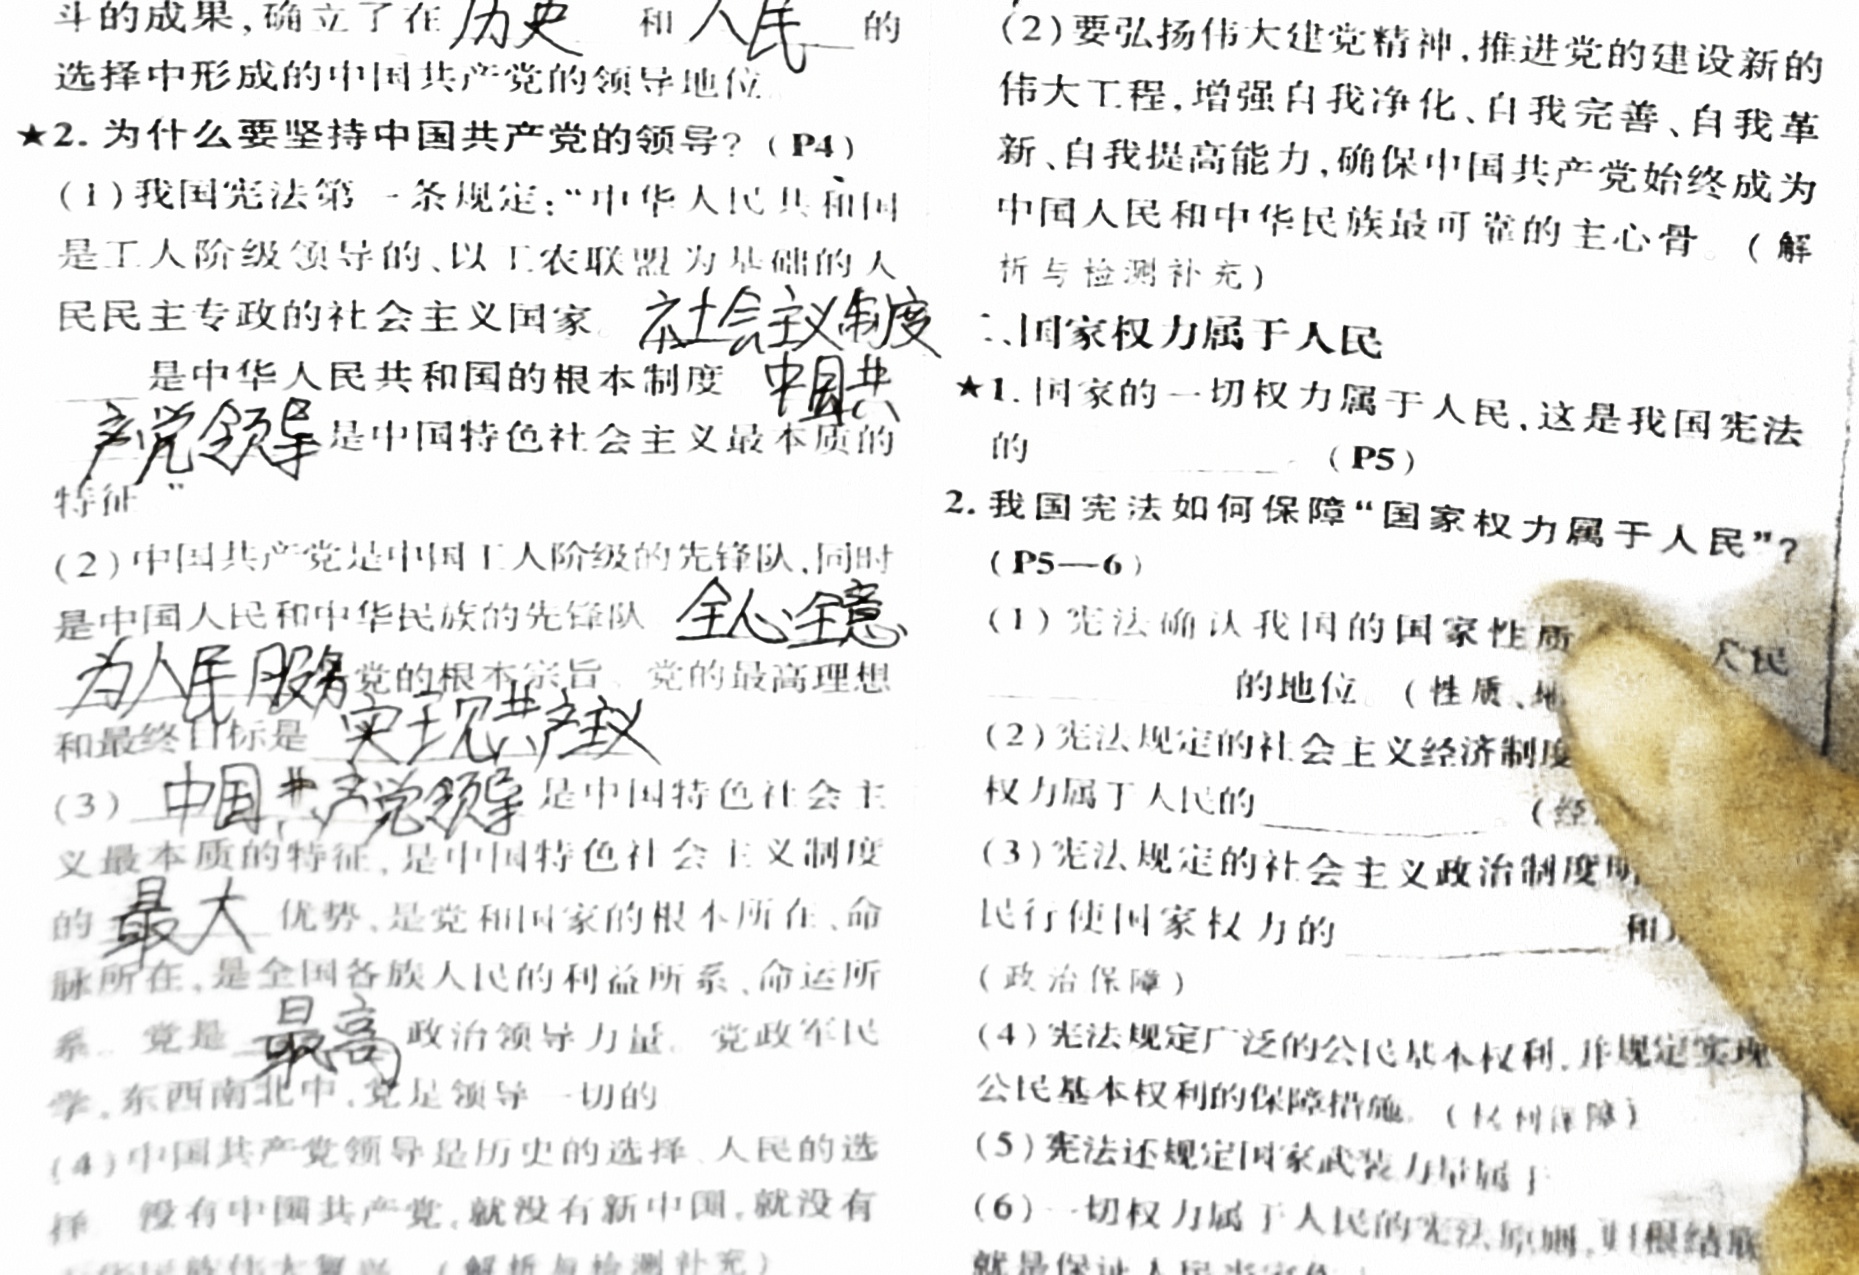 斗的成果,确立了在 历史 和 人民 的
选择中形成的中国共产党的领导地位。
★2. 为什么要坚持中国共产党的领导?(P4)
(1)我国宪法第一条规定:“中华人民共和国
是工人阶级领导的、以工农联盟为基础的人
民民主专政的社会主义国家。 社会主义制度
是中华人民共和国的根本制度 中国共
产党领导 是中国特色社会主义最本质的
特征。”
(2)中国共产党是中国工人阶级的先锋队,同时
是中国人民和中华民族的先锋队 全心全意
为人民服务 党的根本宗旨。党的最高理想
和最终目标是 实现共产主义
(3) 中国共产党领导 是中国特色社会主
义最本质的特征,是中国特色社会主义制度
的 最大 优势,是党和国家的根本所在、命
脉所在,是全国各族人民的利益所系、命运所
系。党是 最高 政治领导力量。党政军民
学,东西南北中,党是领导一切的
(4)中国共产党领导是历史的选择、人民的选
择。没有中国共产党,就没有新中国,就没有
(解析与检测补充)
(2)要弘扬伟大建党精神,推进党的建设新的
伟大工程,增强自我净化、自我完善、自我革
新、自我提高能力,确保中国共产党始终成为
中国人民和中华民族最可靠的主心骨。(解
析与检测补充)
二、国家权力属于人民
★1. 国家的一切权力属于人民,这是我国宪法
的 (P5)
2. 我国宪法如何保障“国家权力属于人民”?
(P5—6)
(1)宪法确认我国的国家性质 人民
的地位。(性质、地
(2)宪法规定的社会主义经济制度
权力属于人民的 (经
(3)宪法规定的社会主义政治制度明
民行使国家权力的 和
(政治保障)
(4)宪法规定广泛的公民基本权利,并规定实现
公民基本权利的保障措施。(权利保障)
(5)宪法还规定国家武装力量属于
(6)一切权力属于人民的宪法原则,归根结底
就是保证人民当家作